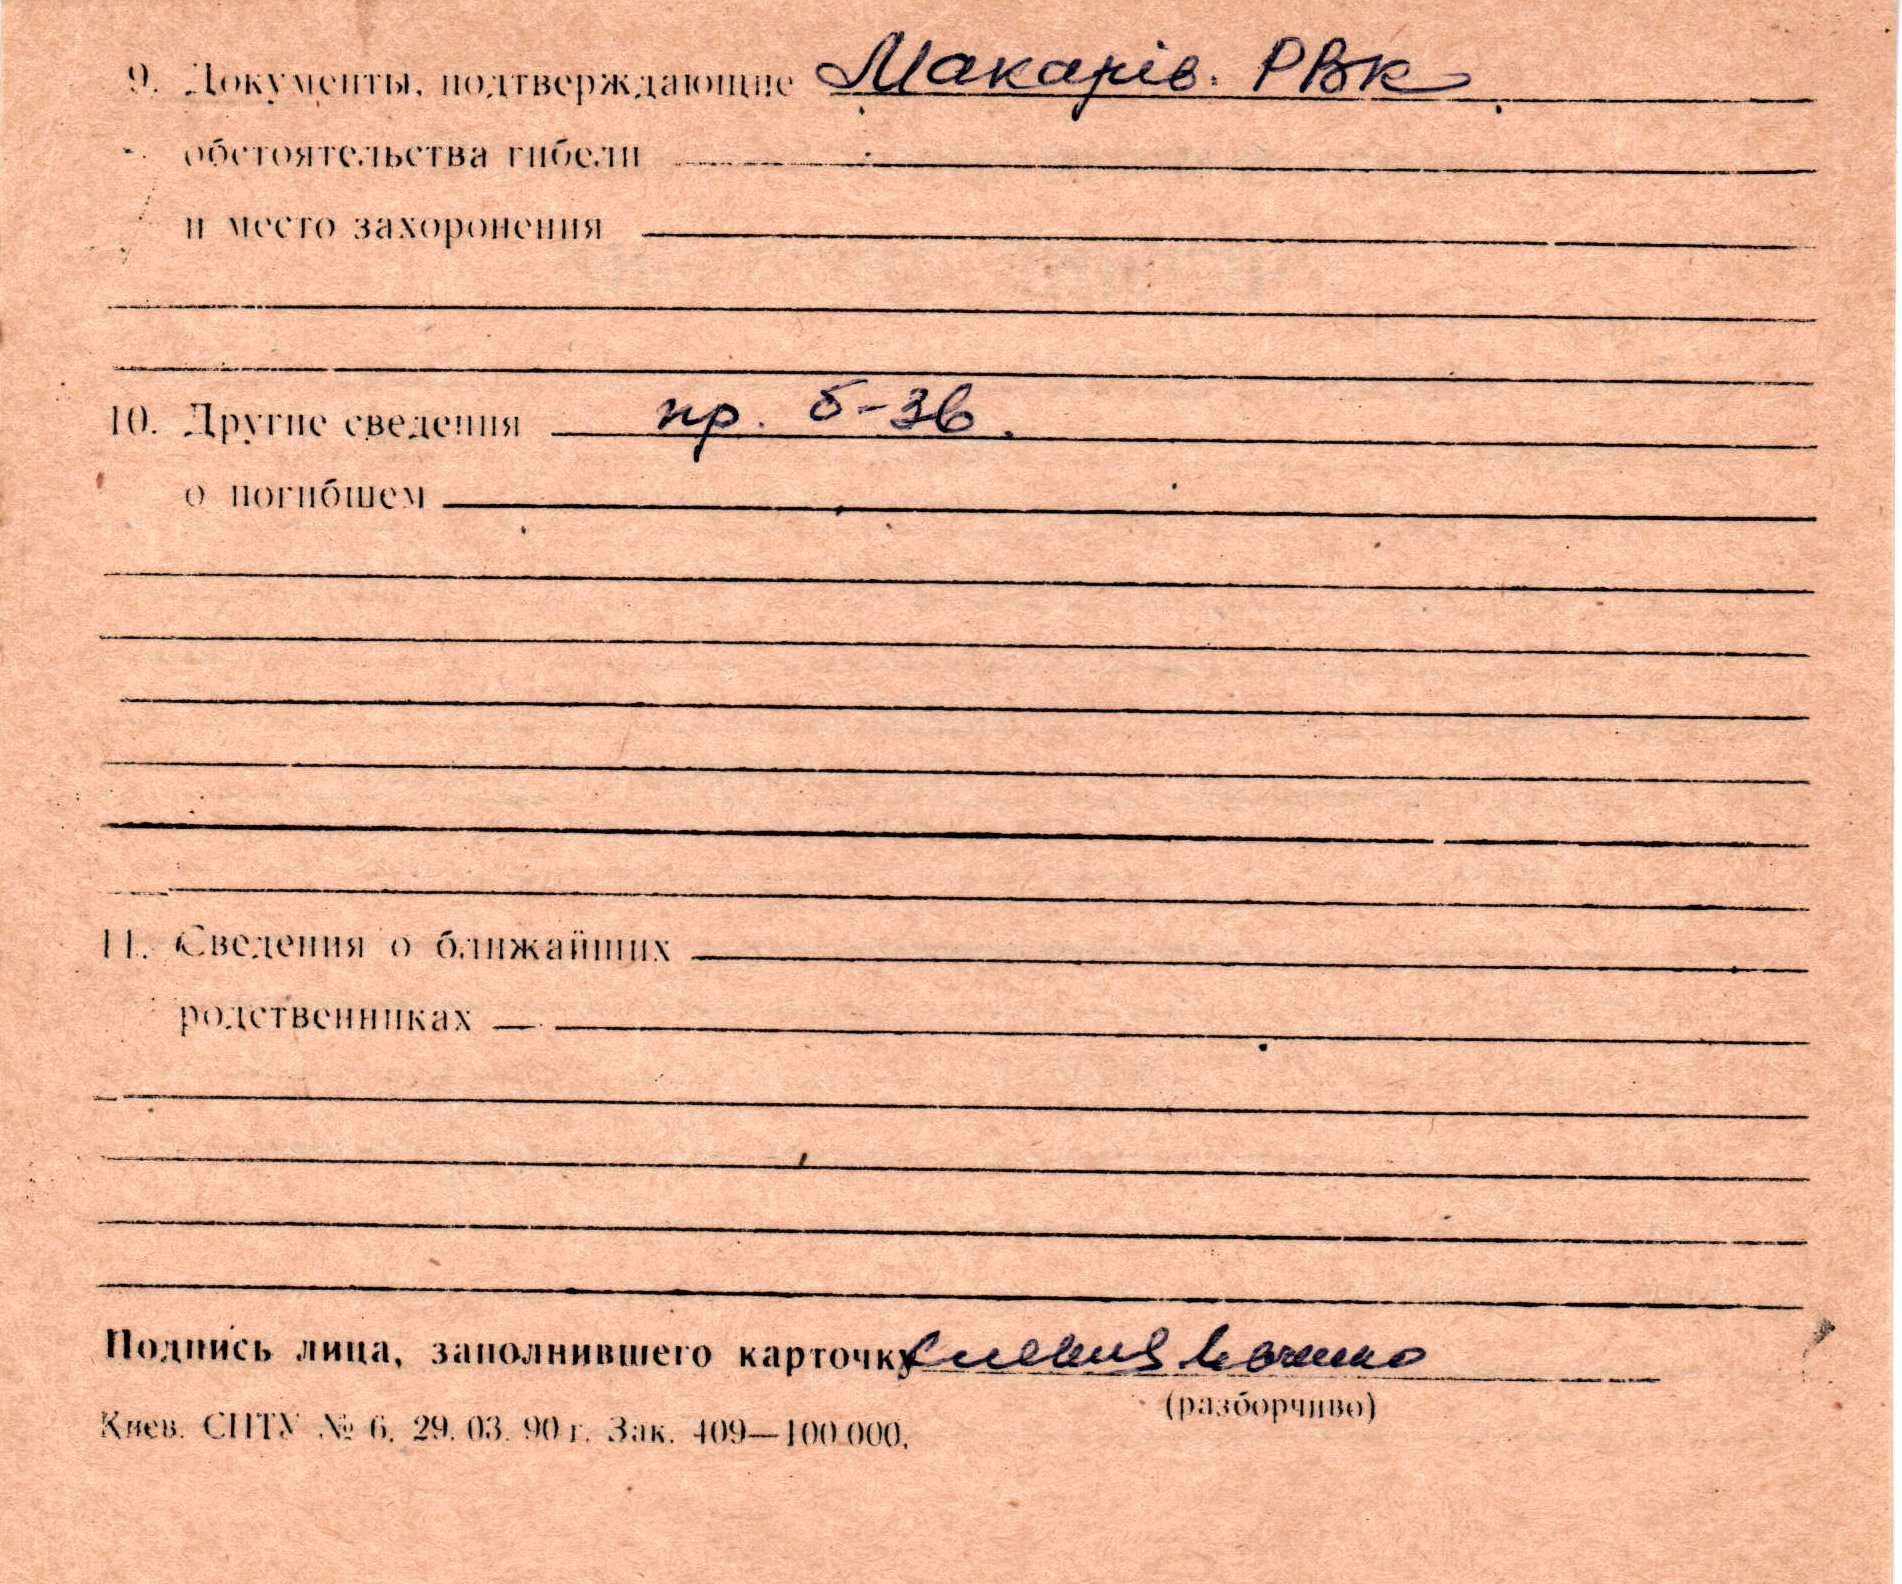 9. Документы, подтверждающие Макарів. РВК
обстоятельства гибели
и место захоронения
10. Другие сведения пр. б-зв.
о погибшем
11. Сведения о ближайших
родственниках
Подпись лица, заполнившего карточку
(разборчиво)
Киев. СПТУ № 6. 29. 03. 90 г. Зак. 409—100.000.